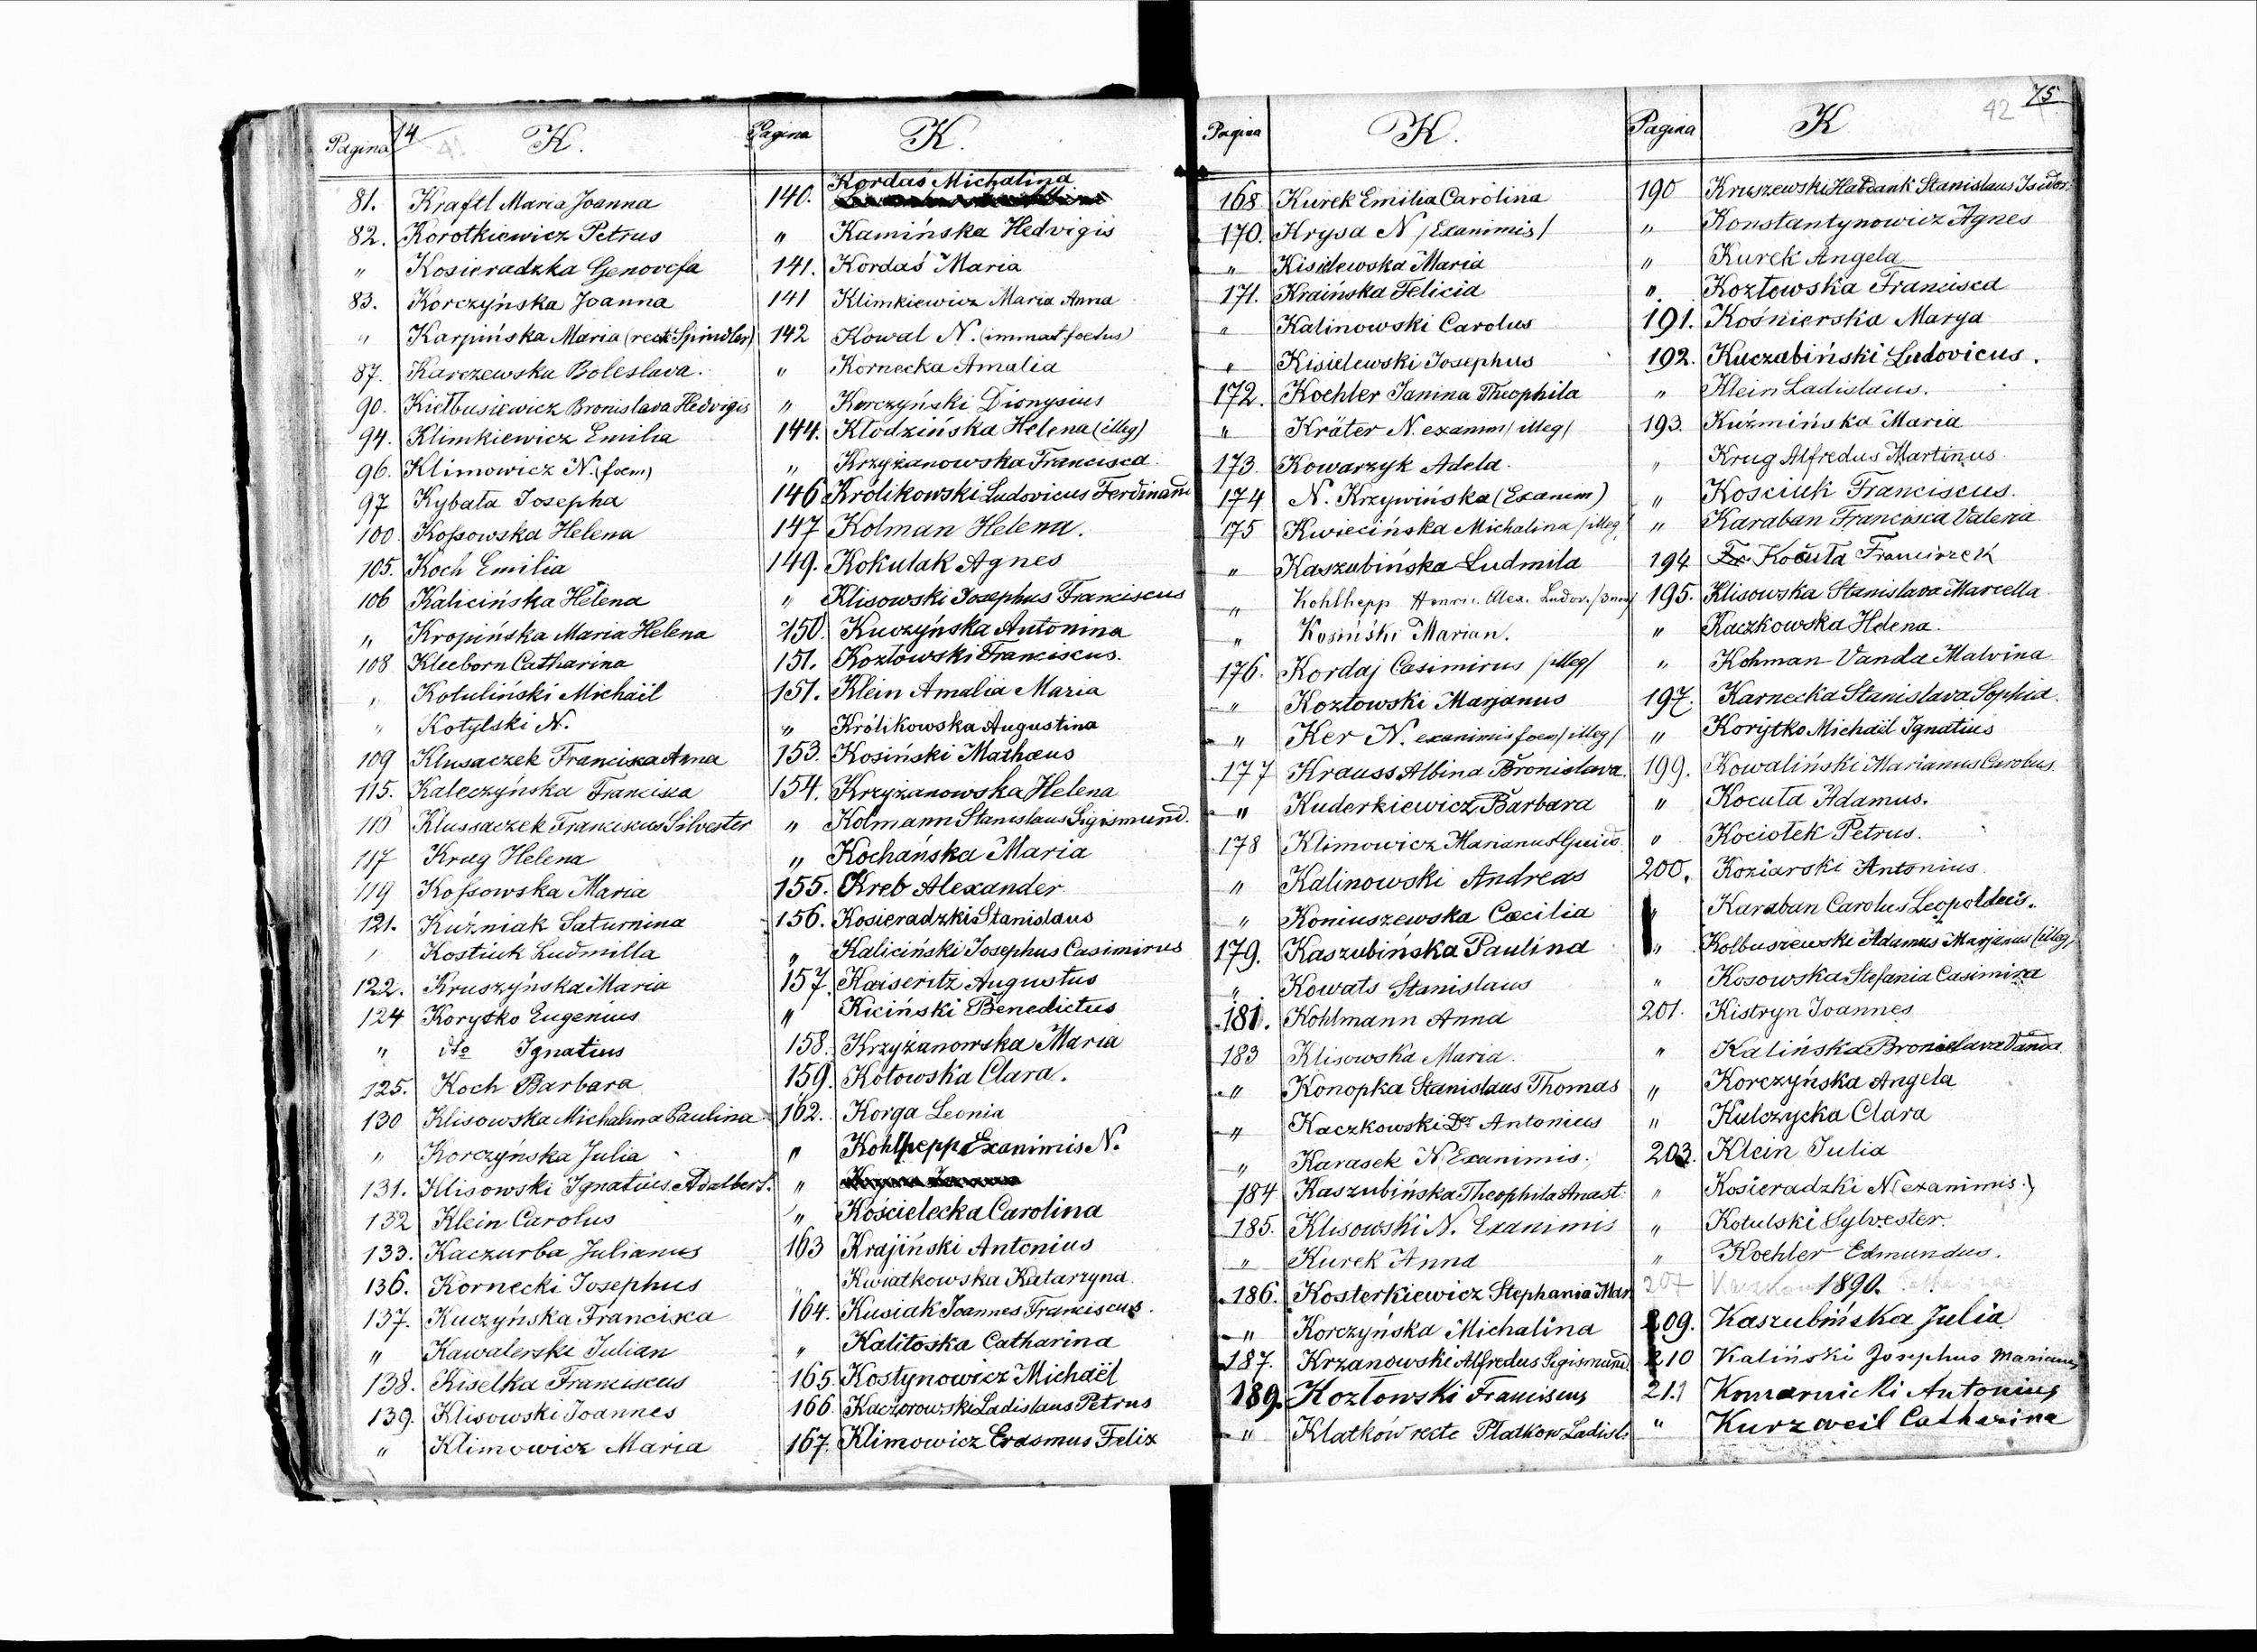 Pagina 14 K.
81. Kraftl Maria Joanna
82. Korotkiewicz Petrus
" Kosieradzka Genovefa
83. Korczyńska Joanna
" Karpińska Maria (recte Spindler)
87. Karczewska Boleslava.
90. Kiełbusiewicz Bronislava Hedvigis
94. Klimkiewicz Emilia
96. Klimowicz N. (foem)
97 Kybała Josepha
100 Kossowska Helena
105. Koch Emilia
106 Kalicińska Helena
" Kropińska Maria Helena
108 Kleeborn Catharina
" Kotuliński Michaël
" Kotylski N.
109 Klusaczek Francisca Anna
115. Kaleczyńska Francisca
116 Klussaczek Franciscus Silvester
117 Krug Helena
119 Kossowska Maria
121. Kuźniak Saturnina
" Kostiuk Ludmilla
122. Kruszyńska Maria
124 Korytko Eugenius
" dto Ignatius
125. Koch Barbara
130 Klisowska Michalina Paulina
" Korczyńska Julia
131. Klisowski Ignatius Adalbert.
132 Klein Carolus
133. Kaczurba Julianus
136. Kornecki Josephus
137. Kuczyńska Francisca
" Kawalerski Julian
138. Kiselka Franciscus
139. Klisowski Joannes
" Klimowicz Maria
Pagina K.
140. Kordaś Michalina
" Kamińska Hedvigis
141. Kordaś Maria
141 Klimkiewicz Maria Anna
142 Kowal N. (immat foetus)
" Kornecka Amalia
" Korczyński Dionysius
144. Kłodzińska Helena (illeg)
" Krzyżanowska Francisca
146 Królikowski Ludovicus Ferdinand
147 Kolman Helena.
149. Kokulak Agnes
" Klisowski Josephus Franciscus
150. Kuczyńska Antonina
151. Kozłowski Franciscus.
151. Klein Amalia Maria
" Królikowska Augustina
153. Kosiński Mathæus
154. Krzyżanowska Helena
" Kolmann Stanislaus Sigismund.
" Kochańska Maria
155. Kreb Alexander
156. Kosieradzki Stanislaus
" Kaliciński Josephus Casimirus
157. Kaiseritz Augustus
" Kiciński Benedictus
158. Krzyżanowska Maria
159. Kotowska Clara.
162. Korga Leonia
" Kohlhepp Exanimis N.
"
" Kościelecka Carolina
163 Krajiński Antonius
" Kwiatkowska Katarzyna
164. Kusiak Joannes Franciscus.
" Kalitoska Catharina
165. Kostynowicz Michaël
166. Kaczorowski Ladislaus Petrus
167. Klimowicz Erasmus Felix
Pagina K.
168 Kurek Emilia Carolina
170. Krysa N /Exanimis/
" Kisielewska Maria
171. Kraińska Felicia
" Kalinowski Carolus
" Kisielewski Josephus
172. Koehler Janina Theophila
" Kräter N. exanim /illeg/
173 Kowarzyk Adela.
174 N. Krzywińska (Exanim)
175 Kwiecińska Michalina /illeg/
" Kaszubińska Ludmila
" Kohlhepp Henric. Alex. Ludov.
" Kosiński Marian.
176. Kordaj Casimirus /illeg/
" Kozłowski Marjanus
" Ker N. exanimis foem /illeg/
177 Krauss Albina Bronislava.
" Kuderkiewicz Barbara
178 Klimowicz Marianus Guido
" Kalinowski Andreas
" Koniuszewska Cæcilia
179. Kaszubińska Paulina
" Kowats Stanislaus
181. Kohlmann Anna
183 Klisowska Maria.
" Konopka Stanislaus Thomas
" Kaczkowski Dr Antonius
" Karasek N. Exanimis.
184 Kaszubińska Theophila Anast.
185. Klisowski N. Exanimis
" Kurek Anna
186. Kosterkiewicz Stephania Mar
" Korczyńska Michalina
187. Krzanowski Alfredus Sigismund
189. Kozłowski Franciscus
" Klatków recte Płatkow Ladisl.
Pagina K 42 75
190 Kruszewski Habdank Stanislaus Isidor.
" Konstantynowicz Agnes
" Kurek Angela
" Kozłowska Francisca
191. Kośnierska Marya
192. Kuczabiński Ludovicus.
" Klein Ladislaus.
193. Kuźmińska Maria
" Krug Alfredus Martinus
" Kosciuk Franciscus.
" Karaban Francisca Valeria
194 Kocuła Franciszek
195. Klisowska Stanislava Marcella
" Kaczkowska Helena.
" Kohman Vanda Malvina
197. Karnecka Stanislava Sophia
" Korytko Michaël Ignatius
199. Kowaliński Marianus Carolus
" Kocuła Adamus.
" Kociołek Petrus.
200. Koziarski Antonius
" Karaban Carolus Leopoldus.
" Kolbuszewski Adamus Marjanus (illeg)
" Kosowska Stefania Casimira
201. Kistryn Joannes
" Kalińska Bronislava Vanda
" Korczyńska Angela
" Kulczycka Clara
203. Klein Julia
" Kosieradzki N (exanimis.)
" Kotulski Sylvester.
" Koehler Edmundus.
207 1890.
209. Kaszubińska Julia
210 Kaliński Josephus Marianus
211 Komarnicki Antonius
" Kurzweil Catharina